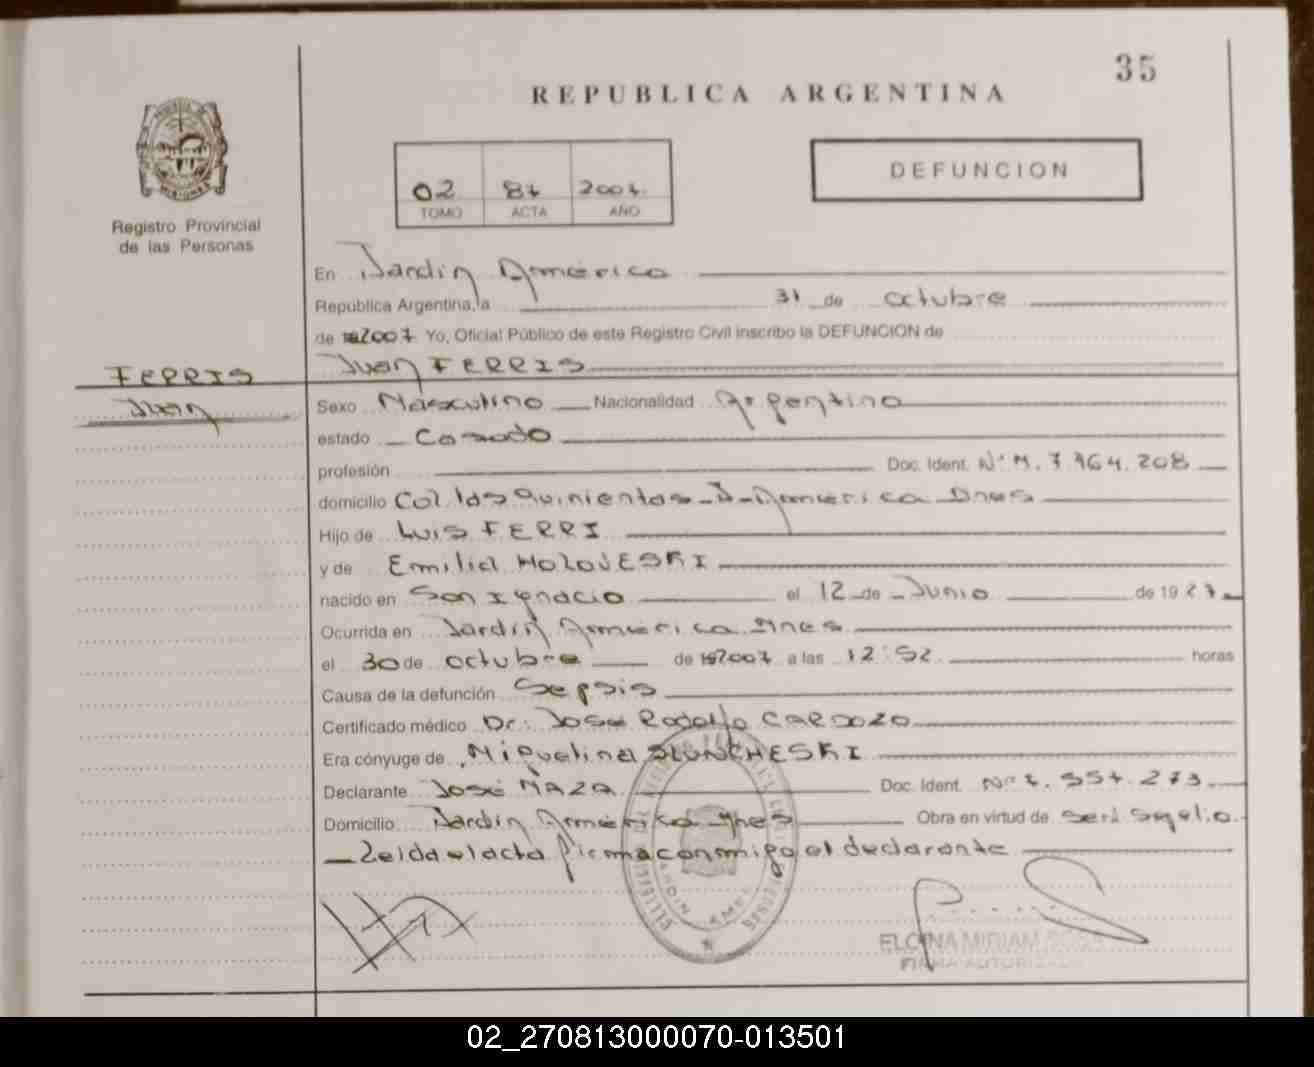 35
REPUBLICA ARGENTINA
DEFUNCION
02 87 2007.
TOMO ACTA AÑO
Registro Provincial
de las Personas
En Jardin America
República Argentina, a 31 de octubre
de 2007 Yo, Oficial Público de este Registro Civil inscribo la DEFUNCION de
FERRIS
Juan FERRIS
Juan
Sexo Masculino Nacionalidad Argentino
estado Casado
profesión Doc. Ident. Nº M. 7.464.208
domicilio Col. las Quinientas - J - America Mnes
Hijo de Luis FERRI
y de Emilia HOLOVESKI
nacido en San Ignacio el 12 de Junio de 1927
Ocurrida en Jardin America Mnes
el 30 de octubre de 2007 a las 12:52 horas
Causa de la defunción Sepsis
Certificado médico Dr: José Rodolfo CARDOZO
Era cónyuge de Miguelina SLUNCHESKI
Declarante José MAZA Doc. Ident. Nº 7.554.273
Domicilio Jardin America Mnes Obra en virtud de Serv. Sepelio.
Leida el acta firma conmigo el declarante
JARDIN AME
MIRIAM
02_270813000070-013501